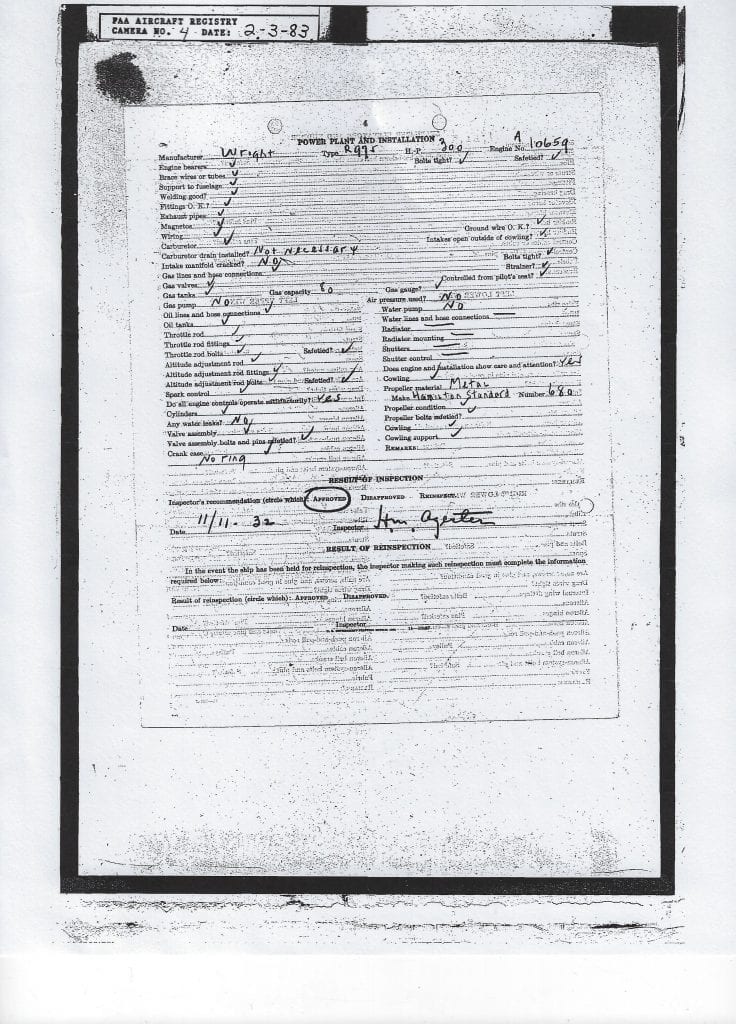 FAA AIRCRAFT REGISTRY
CAMERA NO. 4 DATE: 2-3-83
4
POWER PLANT AND INSTALLATION
Manufacturer Wright Type R975 H.-P. 300 Engine No. A 10659
Engine bearers ✓ Bolts tight? ✓ Safetied? ✓
Brace wires or tubes ✓
Support to fuselage ✓
Welding good? ✓
Fittings O. K.? ✓
Exhaust pipes ✓
Magnetos ✓ Ground wire O. K.? ✓
Wiring ✓ Intakes open outside of cowling? ✓
Carburetor ✓
Carburetor drain installed? Not Necessary Bolts tight? ✓
Intake manifold cracked? No Strainer? ✓
Gas lines and hose connections Controlled from pilot's seat? ✓
Gas valves ✓
Gas tanks ✓ Gas capacity 80 Gas gauge? ✓
Gas pump No Air pressure used? No
Oil lines and hose connections ✓ Water pump No
Oil tanks ✓ Water lines and hose connections —
Throttle rod ✓ Radiator —
Throttle rod fittings ✓ Radiator mounting —
Throttle rod bolts ✓ Safetied? ✓ Shutters —
Altitude adjustment rod ✓ Shutter control —
Altitude adjustment rod fittings ✓ Does engine and installation show care and attention? Yes
Altitude adjustment rod bolts ✓ Safetied? ✓ Cowling ✓
Spark control ✓ Propeller material Metal
Do all engine controls operate satisfactorily? Yes Make Hamilton Standard Number 680
Cylinders ✓ Propeller condition ✓
Any water leaks? No Propeller bolts safetied? ✓
Valve assembly ✓ Cowling ✓
Valve assembly bolts and pins safetied? ✓ Cowling support ✓
Crank case ✓ REMARKS:
No ring
RESULT OF INSPECTION
Inspector's recommendation (circle which): APPROVED DISAPPROVED REINSPECT
Date 11/11-32 Inspector Hm. Agerter
RESULT OF REINSPECTION
In the event the ship has been held for reinspection, the inspector making such reinspection must complete the information
required below:
Result of reinspection (circle which): APPROVED DISAPPROVED.
Date Inspector